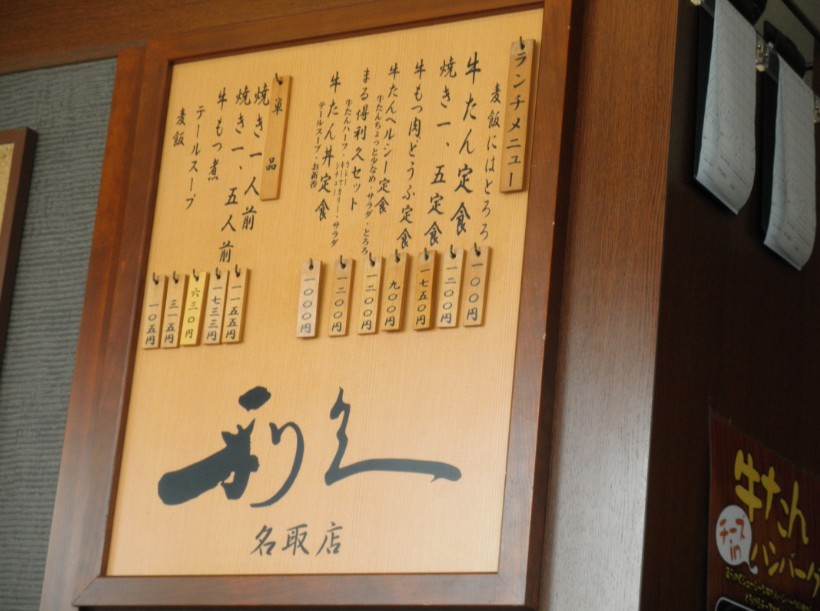 ランチメニュー
麦飯にはとろろ
牛たん定食
焼き一、五定食
牛もつ肉どうふ定食
牛たんヘルシー定食
牛たんちょっと少なめ・サラダ・とろろ
まる得利久セット
牛たん丼定食
テールスープ・お新香
一〇〇円
一二〇〇円
一七五〇円
九〇〇円
一二〇〇円
一二〇〇円
一〇〇〇円
単品
焼き一人前
焼き一、五人前
牛もつ煮
テールスープ
麦飯
一一五五円
一七三三円
六三〇円
三一五円
一〇五円
利久
名取店
牛たん
チーズin
ハンバーグ